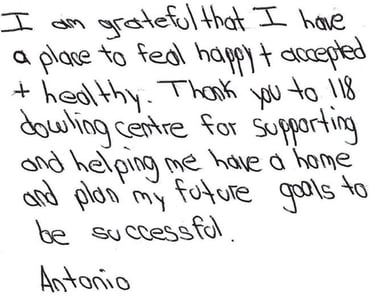 I am grateful that I have
a place to feal happy + accepted
+ healthy. Thank you to 118
dowling centre for supporting
and helping me have a home
and plan my future goals to
be successful.
Antonio